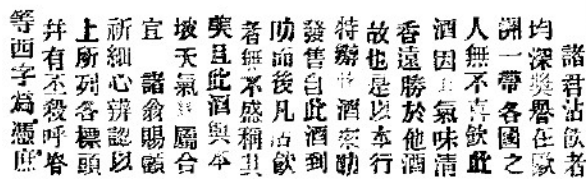 諸君沽飲者
均深獎譽在歐
洲一帶各國之
人無不喜飲此
酒因其氣味清
香遠勝於他酒
故也是以本行
特辦此酒來叻
發售自此酒到
叻而後凡沽飲
者無不感稱其
美且此酒與本
坡天氣甚屬合
宜 諸翁賜顧
祈細心辨認以
上所列各標頭
幷有丕殺呼脊
等西字爲憑庶